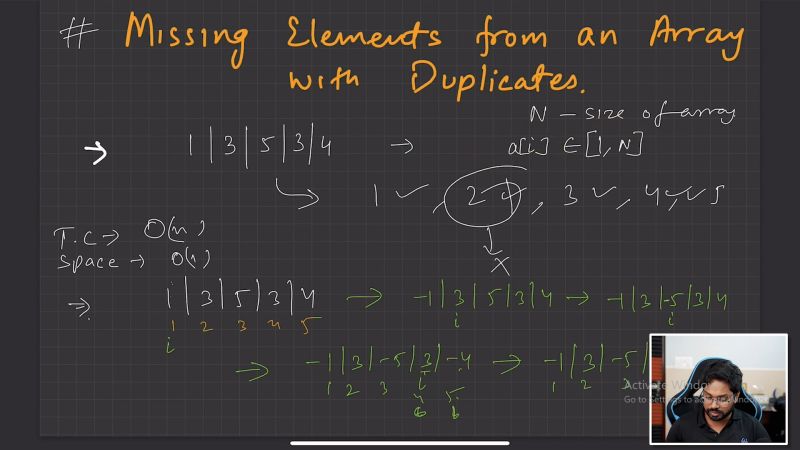 # Missing Elements from an Array
with Duplicates.
N - size of array
→ 1 | 3 | 5 | 3 | 4 → a[i] ∈ [1, N]
1 ✓, 2, 3 ✓, 4 ✓, ✓ 5
T.C → O(n)
Space → O(1)
x
⇒ 1 | 3 | 5 | 3 | 4 → -1 | 3 | 5 | 3 | 4 → -1 | 3 | -5 | 3 | 4
1 2 3 4 5 i i
i
→ -1 | 3 | -5 | 3 | -4 → -1 | 3 | -5 |
1 2 3 i 1 2 3
4 5
Activate Windows
Go to Settings to activate Windows.